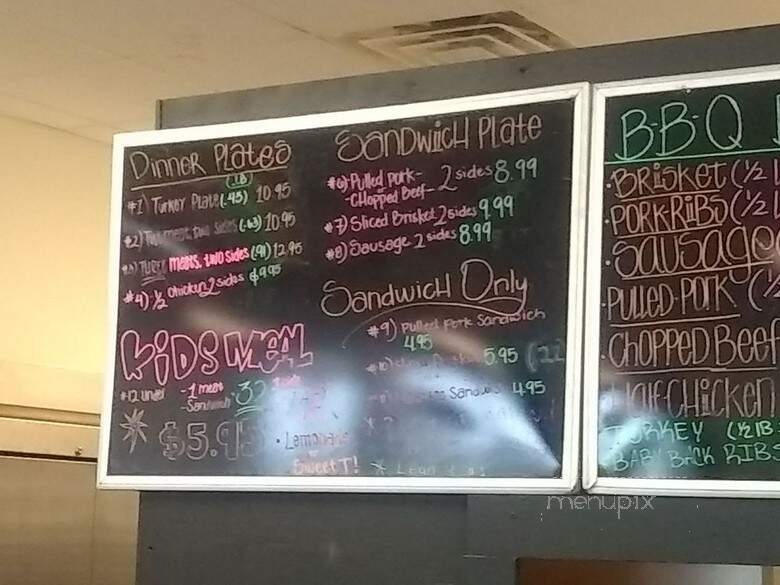 Dinner Plates
(.LB)
#1) Turkey Plate (.45) 10.95
#2) two sides (.63) 10.95
meats, two sides (.91) 12.95
#4) ½ chicken 2 sides $9.95
KiDS MEAL
#12 under
-1 meat
-Sandwich
$5.95
• Lemonade
or
Sweet T!
SANDWiCH PLATE
#6) Pulled Pork-
-CHopped Beef- 2 sides 8.99
#7) Sliced Brisket 2 sides 9.99
#8) Sausage 2 sides 8.99
Sandwich Only
#9) Pulled Pork Sandwich
4.95
5.95
Sandwich 4.95
B-B-Q
• BRiSKET (½
• PORK-RiBS (½
• SAUSAGE
• PULLED-PORK (½
• CHOPPED BEEF
HALF CHiCKEN
TURKEY (½ lB
BABY BACK RIBS
menupix